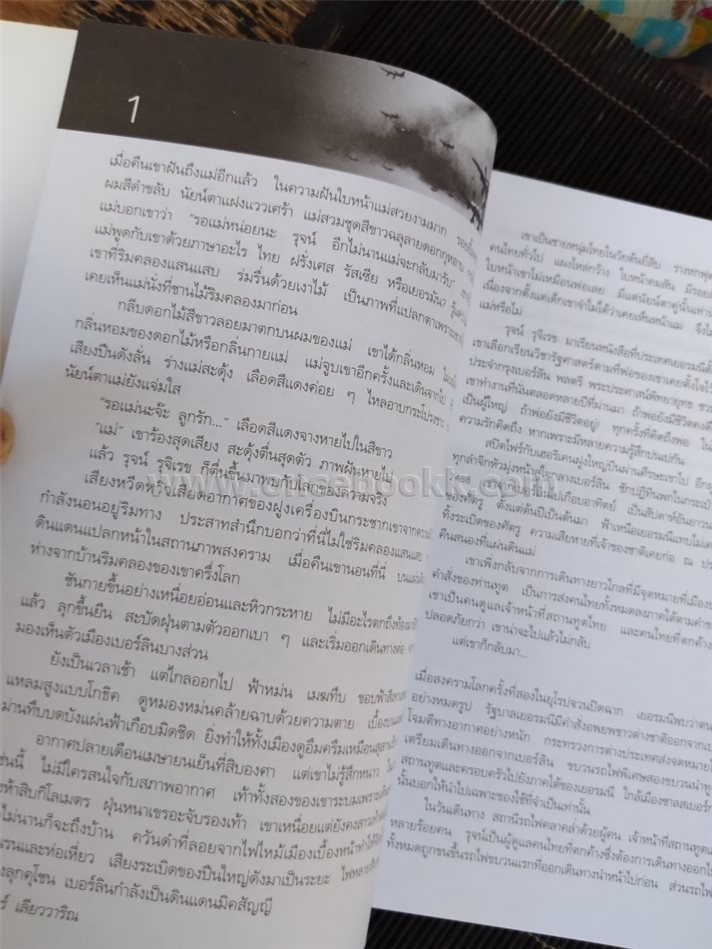 1
เมื่อคืนเขาฝันถึงแม่อีกแล้ว ในความฝันใบหน้าแม่สวยงามมาก
ผมสีดำขลับ นัยน์ตาแฝงแววเศร้า แม่สวมชุดสีขาวฉลุลายดอกกุหลาบ
แม่บอกเขาว่า "รอแม่หน่อยนะ รุจน์ อีกไม่นานแม่จะกลับมารับ"
แม่พูดกับเขาด้วยภาษาอะไร ไทย ฝรั่งเศส รัสเซีย หรือเยอรมัน?
เขาที่ริมคลองแสนแสบ ร่มรื่นด้วยเงาไม้ เป็นภาพที่แปลกตาเพราะ
เคยเห็นแม่นั่งที่ชานไม้ริมคลองมาก่อน
กลีบดอกไม้สีขาวลอยมาตกบนผมของแม่ เขาได้กลิ่นหอม
กลิ่นหอมของดอกไม้หรือกลิ่นกายแม่ แม่จูบเขาอีกครั้งและเดินจากไป
เสียงปืนดังลั่น ร่างแม่สะดุ้ง เลือดสีแดงค่อย ๆ ไหลอาบกระโปรงขาว
นัยน์ตาแม่ยังแจ่มใส
"รอแม่นะจ๊ะ ลูกรัก..." เลือดสีแดงจางหายไปในสีขาว
"แม่" เขาร้องสุดเสียง สะดุ้งตื่นสุดตัว ภาพฝันหายไป
แล้ว รุจน์ รุจิเรข ก็ตื่นขึ้นมาพบกับโลกของความจริง
เสียงหวีดหวิวเสียดอากาศของฝูงเครื่องบินกระชากเขาจาก
กำลังนอนอยู่ริมทาง ประสาทสำนึกบอกว่าที่นี่ไม่ใช่ริมคลองแสนแสบ
ดินแดนแปลกหน้าในสถานภาพสงคราม เมื่อคืนเขานอนที่นี่
ห่างจากบ้านริมคลองของเขาครึ่งโลก
ชันกายขึ้นอย่างเหนื่อยอ่อนและหิวกระหาย ไม่มีอะไรตกถึงท้อง
แล้ว ลุกขึ้นยืน สะบัดฝุ่นตามตัวออกเบา ๆ และเริ่มออกเดินทางต่อ
มองเห็นตัวเมืองเบอร์ลินบางส่วน
ยังเป็นเวลาเช้า แต่ไกลออกไป ฟ้าหม่น เมฆทึบ ขอบฟ้าสี
แหลมสูงแบบโกธิค ดูหมองหม่นคล้ายฉาบด้วยความตาย เบื้องบน
ม่านทึบบดบังแผ่นฟ้าเกือบมิดชิด ยิ่งทำให้ทั้งเมืองดูอึมครึมเหมือนสุสาน
อากาศปลายเดือนเมษายนเย็นที่สิบองศา แต่เขาไม่รู้สึกหนาว
เช่นนี้ ไม่มีใครสนใจกับสภาพอากาศ เท้าทั้งสองของเขาระบมเพราะ
ห้าสิบกิโลเมตร ฝุ่นหนาเขรอะจับรองเท้า เขาเหนื่อยแต่ยังคง
ไม่นานก็จะถึงบ้าน ควันดำที่ลอยจากไฟไหม้เมืองเบื้องหน้าทำให้
และห่อเหี่ยว เสียงระเบิดของปืนใหญ่ดังมาเป็นระยะ
ลุกคุโชน เบอร์ลินกำลังเป็นดินแดนมิคสัญญี
เลียววาริณ
เขาเป็นชายหนุ่มไทยในวัยต้นยี่สิบ
คนไทยทั่วไป แผงไหล่กว้าง ใบหน้าคมสัน
ใบหน้าเขาไม่เหมือนพ่อเลย มีแต่นัยน์ตาคู่นั้น
เนื่องจากตั้งแต่เด็กเขาจำไม่ได้ว่าเคยเห็นหน้าแม่
แม่หรือไม่
รุจน์ รุจิเรข มาเรียนหนังสือที่ประเทศเยอรมนี
เขาเลือกเรียนวิชารัฐศาสตร์ตามที่พ่อของเขาเคยตั้งใจไว้
ประจำกรุงเบอร์ลิน พลตรี พระประศาสน์พิทยายุทธ
เขาทำงานที่นั่นตลอดหลายปีที่ผ่านมา ถ้าพ่อยังมีชีวิต
เป็นผู้ใหญ่ ถ้าพ่อยังมีชีวิตอยู่! ทุกครั้งที่คิดถึงพ่อ
ความรักคิดถึง หากเพราะมีหลายความรู้สึกปนเปกัน
สปิตไฟร์กับเฮอริเคนฝูงใหญ่บินผ่านศีรษะเขาไป
ทุกลำจิกหัวมุ่งหน้าสู่ใจกลางเบอร์ลิน
ของศัตรู ตั้งแต่ต้นปีเป็นต้นมา ฟ้าเหนือเยอรมนีแทบไม่
ทิ้งระเบิดของศัตรู ความเสียหายที่เจ้าของชาติเคยก่อ
คืนสนองที่แผ่นดินแม่
เขาเพิ่งกลับจากการเดินทางยาวไกลที่มีจุดหมายที่เมือง
คำสั่งของท่านทูต เป็นการส่งคนไทยทั้งหมดลงภาคใต้ตามคำ
เขาเป็นคนดูแลเจ้าหน้าที่สถานทูตไทย และคนไทยที่ตกค้าง
ปลอดภัยกว่า เขาน่าจะไปแล้วไม่กลับ
แต่เขาก็กลับมา...
เมื่อสงครามโลกครั้งที่สองในยุโรปจวนปิดฉาก เยอรมนีพบว่าตน
อย่างหมดรูป รัฐบาลเยอรมนีมีคำสั่งอพยพชาวต่างชาติออกจาก
โจมตีทางอากาศอย่างหนัก กระทรวงการต่างประเทศส่งจดหมาย
เตรียมเดินทางออกจากเบอร์ลิน ขบวนรถไฟพิเศษสองขบวน
สถานทูตและครอบครัวไปยังภาคใต้ของเยอรมนี ใกล้เมืองซาลสเบอร์ก
นั้นบอกให้นำไปเฉพาะของใช้ที่จำเป็นเท่านั้น
ในวันเดินทาง สถานีรถไฟคลาคล่ำด้วยผู้คน เจ้าหน้าที่สถานทูต
หลายร้อยคน รุจน์เป็นผู้ดูแลคนไทยที่ตกค้างซึ่งต้องการเดินทางออก
ทั้งหมดถูกขนขึ้นรถไฟขบวนแรกที่ออกเดินทางนำหน้าไปก่อน ส่วนรถไฟ